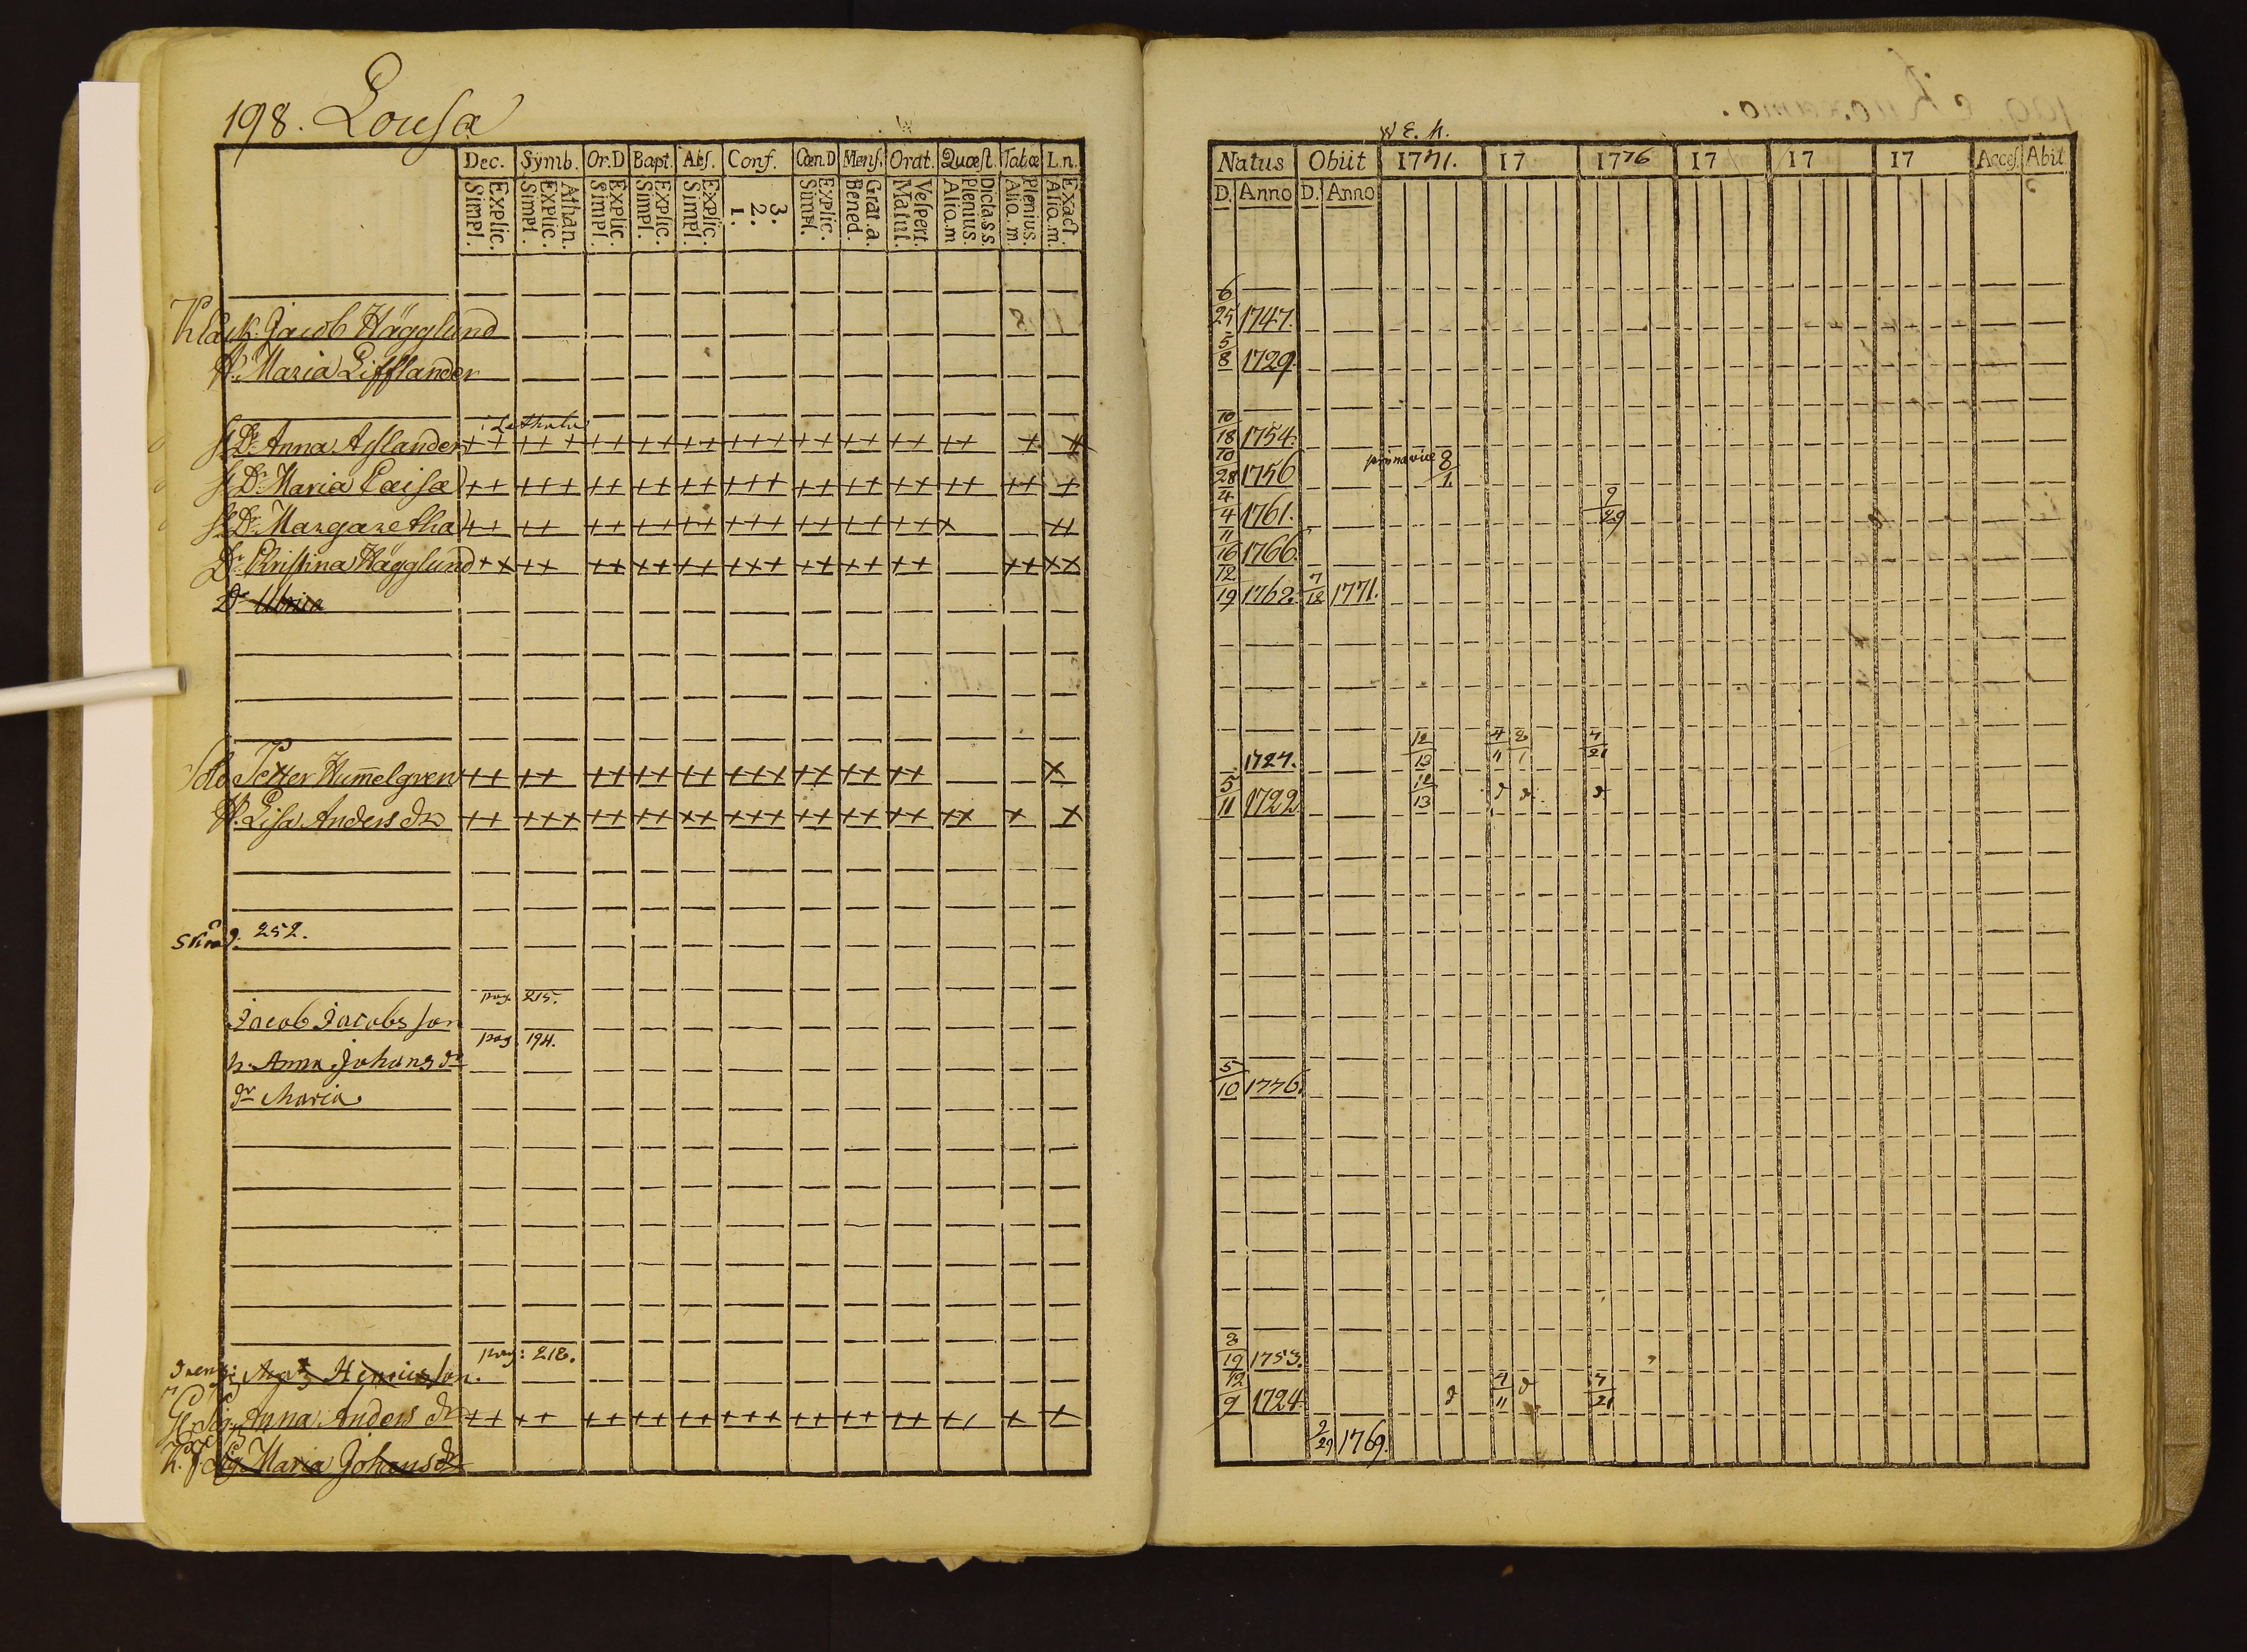 198. Lousa
Dec. Symb. Or.D Bapt. Abs. Conf. Cœn.D Mens. Orat. Quæst. Tabœ L.n.
Explic. Simpl. Athan. Explic. Simpl. Explic. Simpl. Explic. Simpl. Explic. Simpl. 3. 2. 1. Explic. Simpl. Grat. a. Bened. Vespert. Matut. Dicta.s.s. Plenius. Aliq.m Plenius. Aliq.m. Exact. Aliq.m.
Jacob Hägglund
H. Maria Lifflander
Dr Anna Asslander ++ +++ ++ ++ ++ +++ ++ ++ ++ ++ + +
Dr Maria Caisa ++ +++ ++ ++ ++ +++ ++ ++ ++ ++ ++ +
Dr Margaretha ++ ++ ++ ++ ++ +++ ++ ++ ++ + ++
Dr Christina Hägglund ++ ++ ++ ++ ++ +++ ++ ++ ++ ++ ++
Dr Ulrica
Petter Hum̄elgren ++ ++ ++ ++ ++ +++ ++ ++ ++ +
H. Lisa Anders dr ++ +++ ++ ++ ++ +++ ++ ++ ++ ++ + +
252.
pag. 215.
Jacob Jacobsson
pag. 194.
h. Anna Johans dr
dr Maria
pag: 218.
Henricsson.
Anna Anders dr ++ ++ ++ ++ ++ +++ ++ ++ ++ ++ + +
Maria Johans dr
Natus Obiit 1771. 17 1776 17 17 17 Acces. Abit
D. Anno D. Anno
6/25 1747.
5/8 1729.
10/18 1754.
10/28 1756 8/1
4/4 1761. 9/29
11/16 1766.
12/19 1762. 7/12 1771.
1727. 12/13 4/11 8/1 7/21
5/11 1722 12/13 d d d
5/10 1776.
3/19 1753.
12/9 1724 d 4/11 d 7/21
9/29 1769.